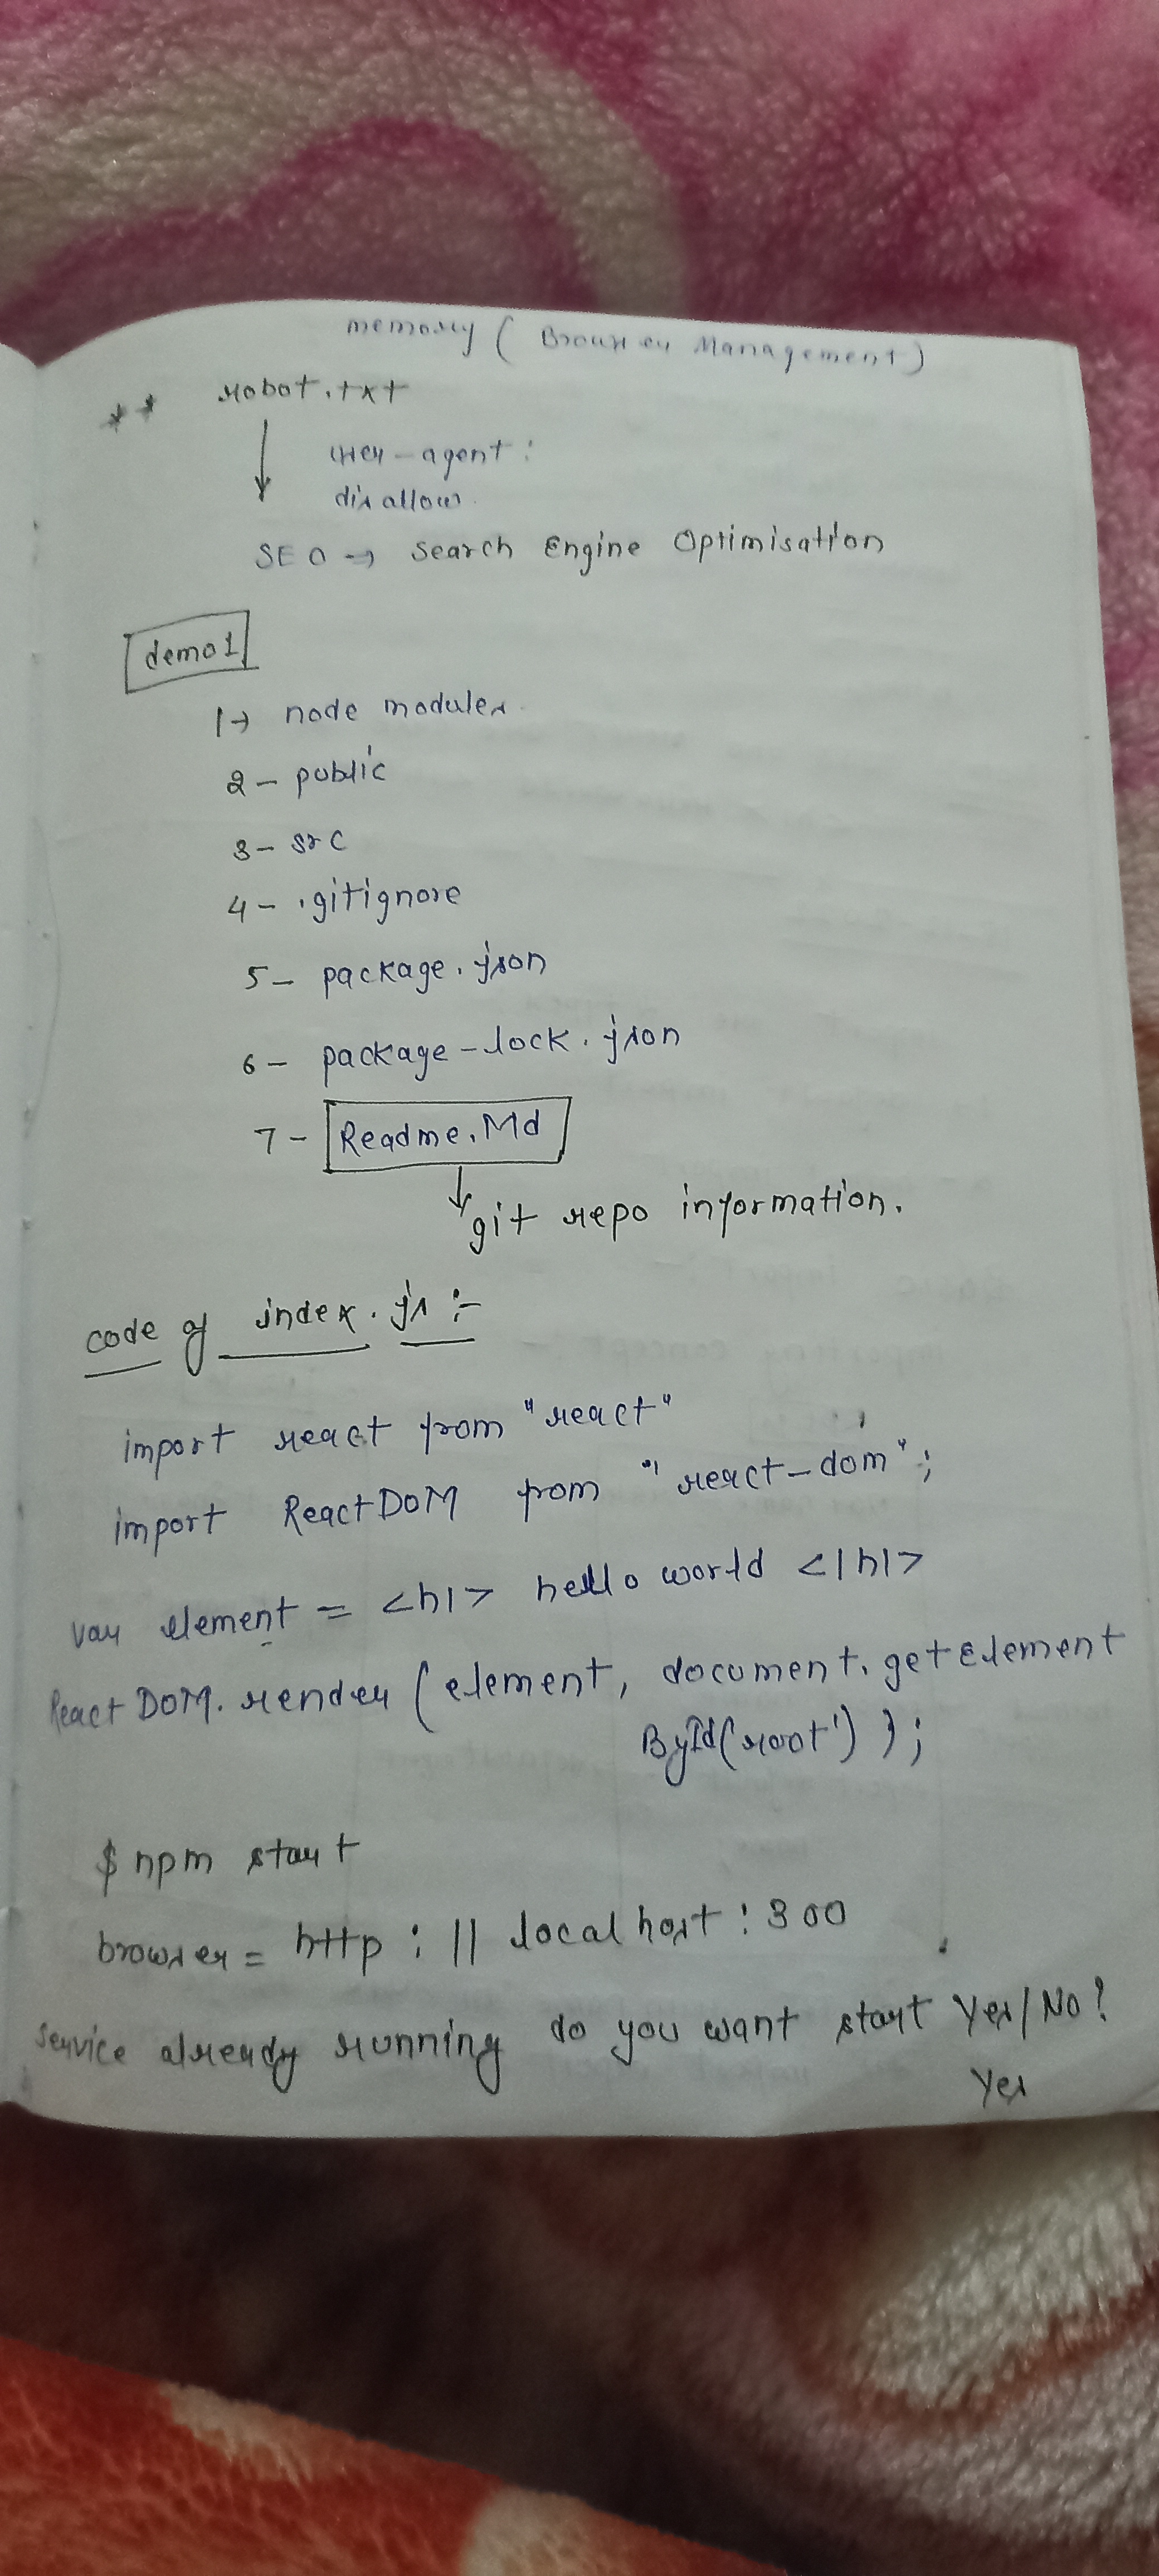 memory ( Browser Management )
** robot.txt
user-agent :
disallow
SEO → Search Engine Optimisation
demo1
1→ node modules
2- public
3- src
4- .gitignore
5- package.json
6- package-lock.json
7- Readme.Md
git repo information.
code of index.js :-
import react from "react"
import ReactDOM from "react-dom";
var element = <h1> hello world </h1>
ReactDOM.render (element, document.getElement
ById(root') );
$ npm start
browser = http : // localhost : 300
service already running do you want start Yes/No?
Yes